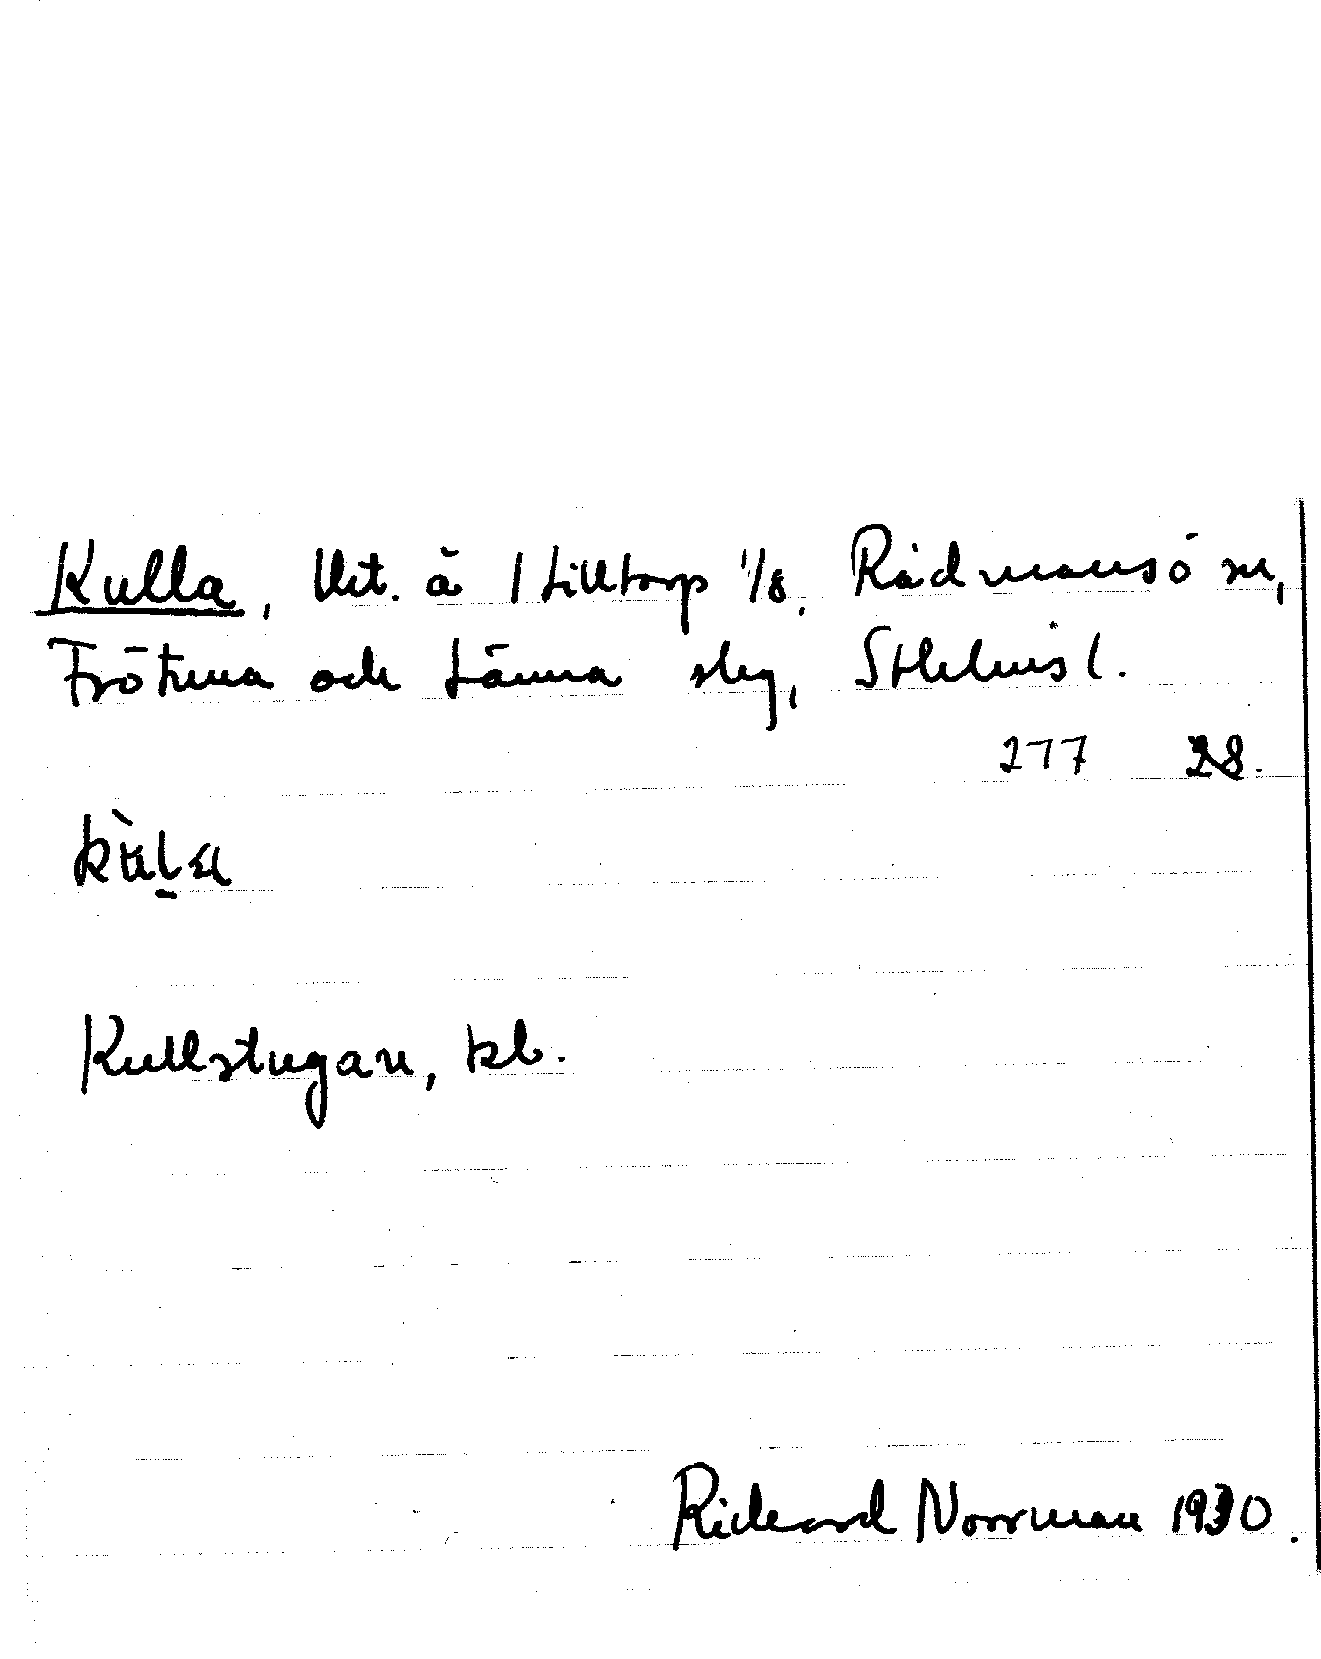 Kulla, lht. å 1 Lilltorp 1/8, Rådmansö sn,
Frötuna och Länna slg, Sthlms l.
277 28.
Kullstugan, kl.
Rickard Norrman 1930.